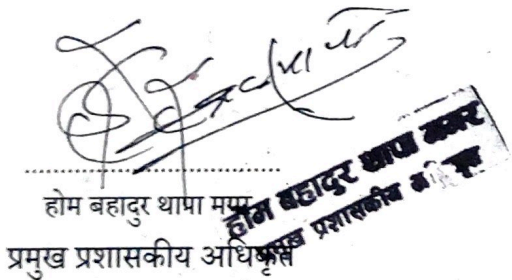 होम बहादुर थापा मगर
प्रमुख प्रशासकीय अधिकृत
होम बहादुर थापा मगर
प्रमुख प्रशासकीय